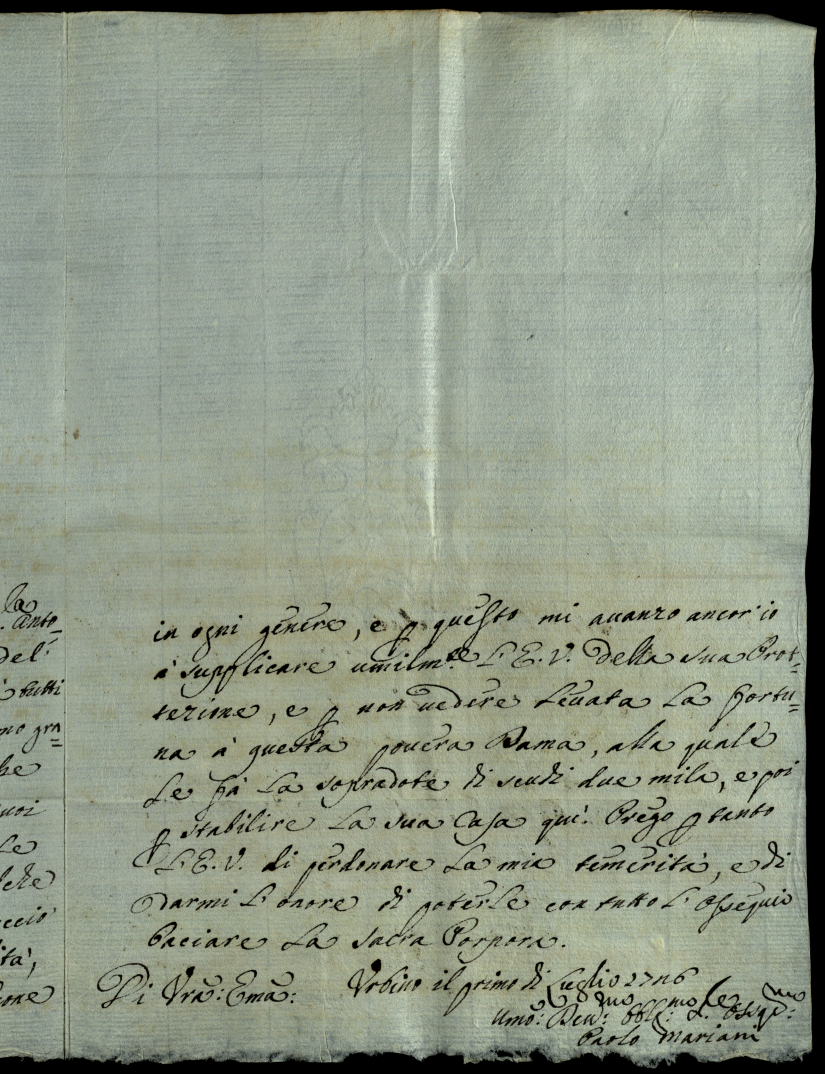 la
Anto=
del
tutti
mo gra=
he
uoi
le
che
ccio
ta',
one
in ogni genere, e p questo mi auanzo ancor'io
à supplicare umilm.te L'E.V. della sua Prot=
tezione, e p non uedere leuata la fortu=
na à questa pouera Dama, alla quale
se fà la sopradote di scudi due mila, e poi
p stabilire la sua Casa quì. Prego p tanto
L'E.V. di perdonare la mia temerità, e di
darmi l'onore di poterle con tutto l'ossequio
baciare la Sacra Porpora.
Di Vrã: Emã: Urbino il primo di Luglio
Umo: Deu:mo Obl:mo Se: Osseq:mo
Paolo Mariani